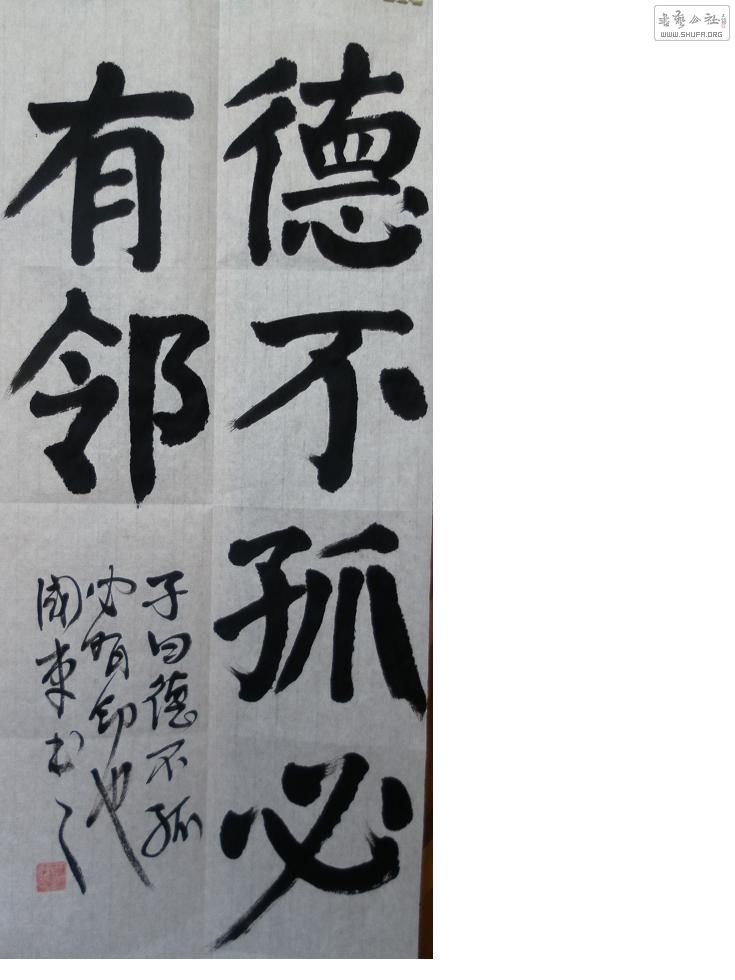 德不孤必
有邻
子曰德不孤
必有邻也
國東书之
书艺公社
WWW.SHUFA.ORG